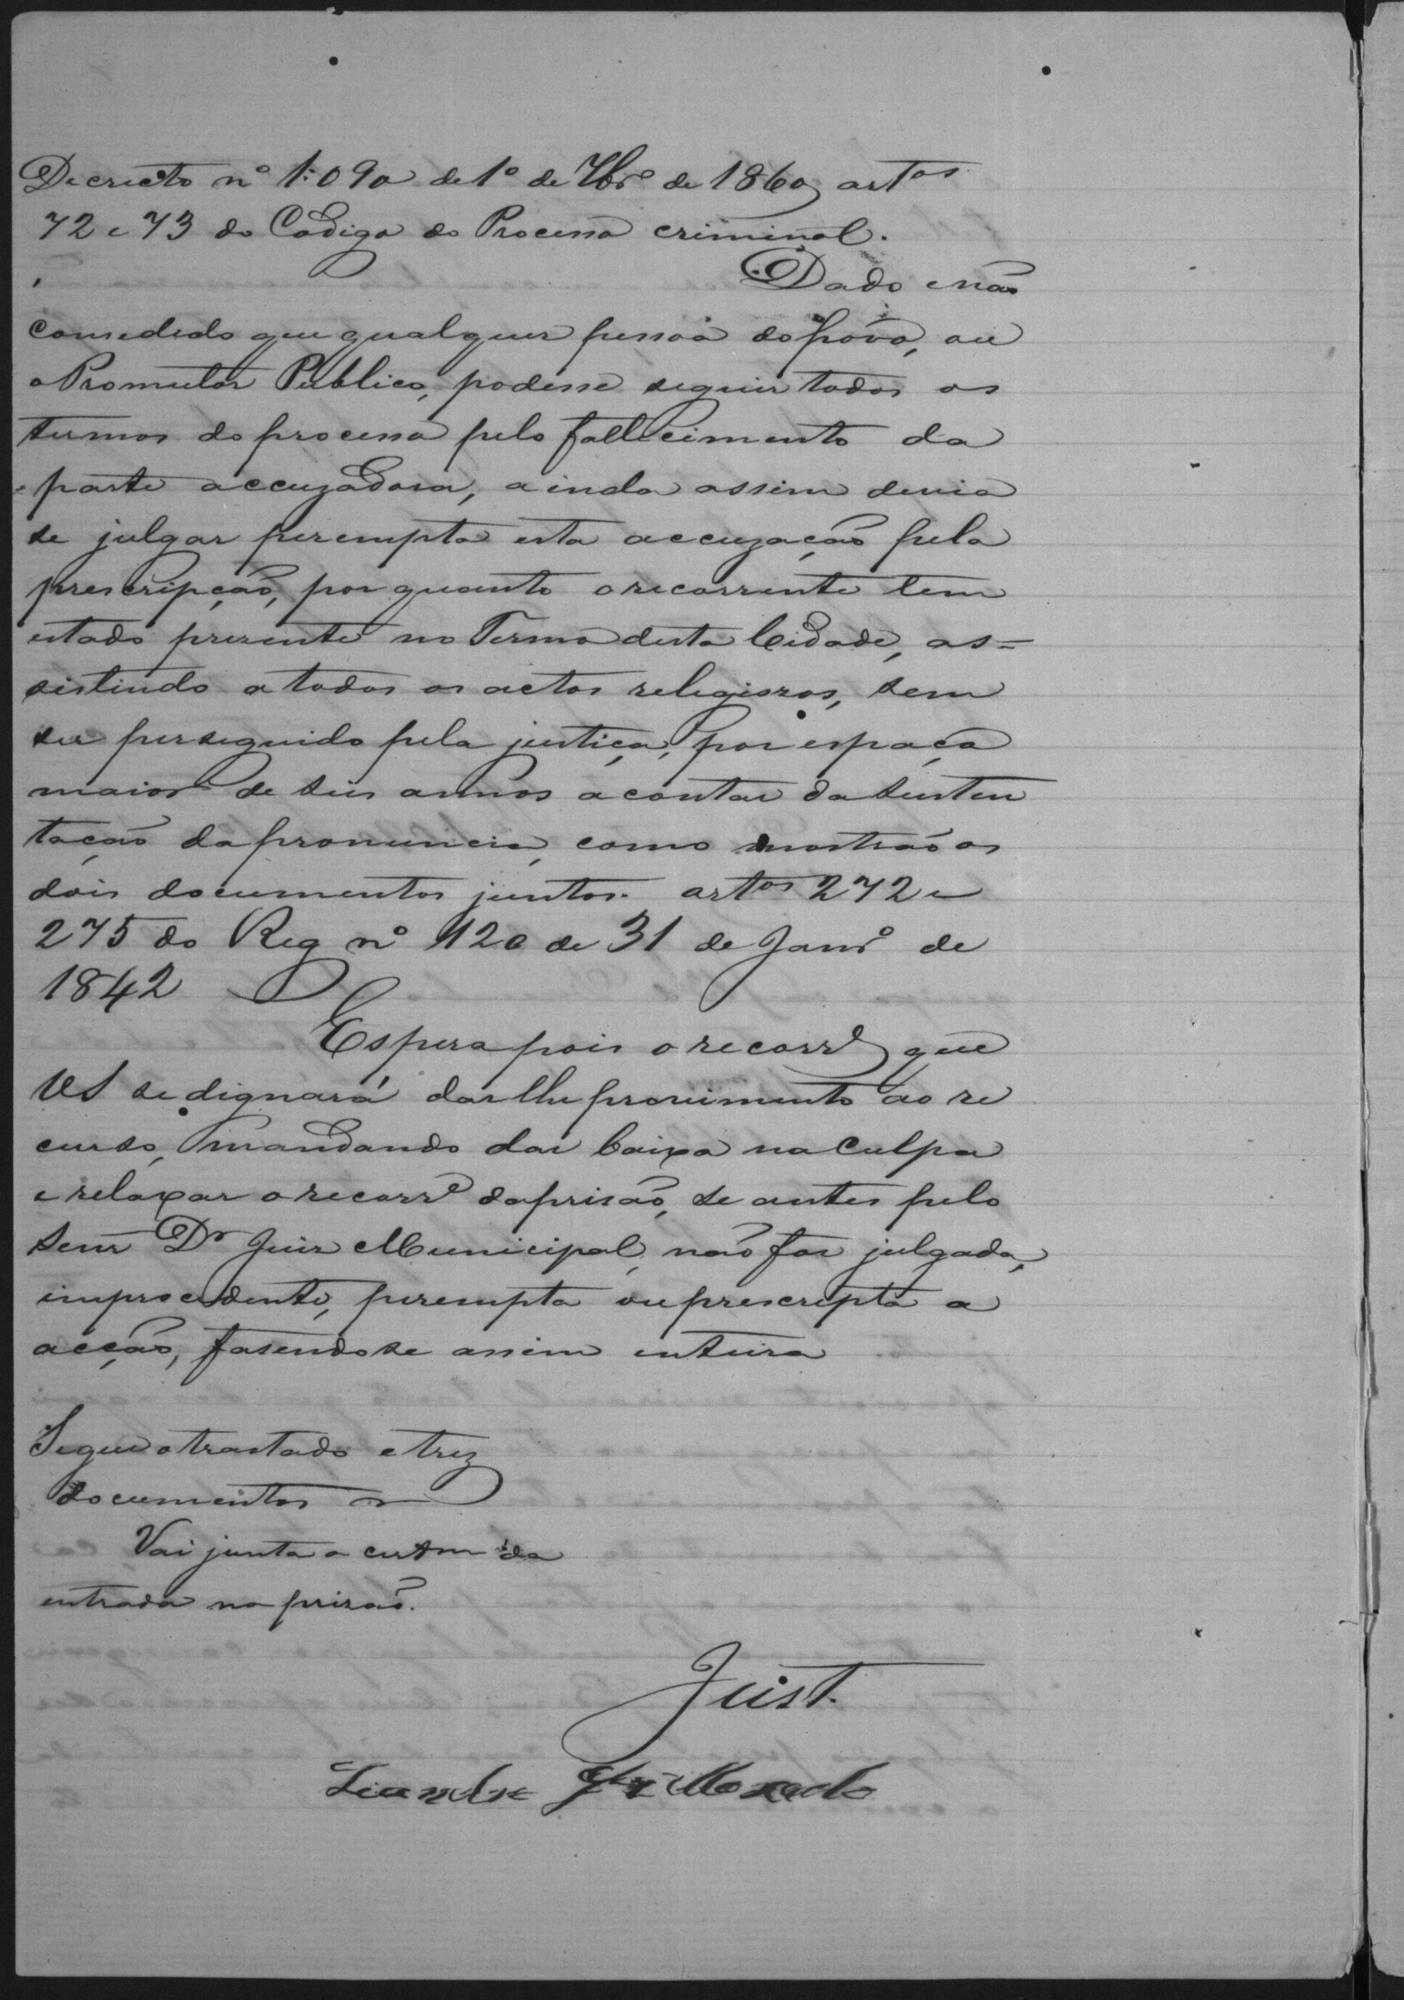 Decreto nº 1:090 de 1º de 7brº de 1860, artos
72 e 73 do Codigo do Processo criminal.
Dado e não
consedido que qualquer pessoa do povo, ou
o Promutor Publico, podesse seguir todos os
termos do processo pelo fallecimento da
parte accuzadora, ainda assim devia
se julgar perempta esta accuzação pela
prescripção, por quanto o recorrente tem
estado prezente no Termo desta Cidade, as=
sistindo a todos os actos religiozos, sem
ser perseguido pela justiça, por espaço
maior de seis annos a contar da susten
tação da pronuncia, como mostrão os
dois documentos juntos. artos 272 e
275 do Reg nº 120 de 31 de Janrº de
1842
Espera pois o recorre que
VS se dignará dar lhe provimento ao re
curso, mandando dar baixa na culpa
e relaxar o recorre da prisão, se antes pelo
Senr Dr Juis Municipal, não for julgada,
improcedente, perempta ou prescripta a
acção, fasendo se assim inteira
Segue o trastado e trez
documentos
Vai junta a certm da
entrada na prizão.
Just.
Leandro José Macedo